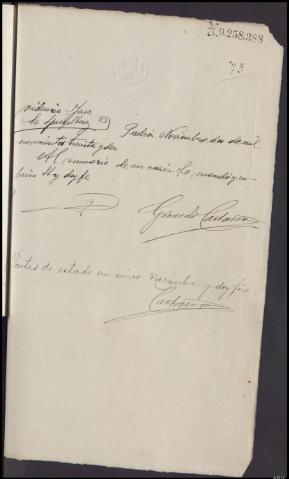 N.9.258.388
73
videncia Juez
Sr
Padrón Noviembre dos de mil
novecientos treinta y dos
Al sumario de su razón. Lo mandó y ru-
brica S.S. doy fe
Gerardo Castaño
Partes de estado en cinco Noviembre y doy fe
Castaño